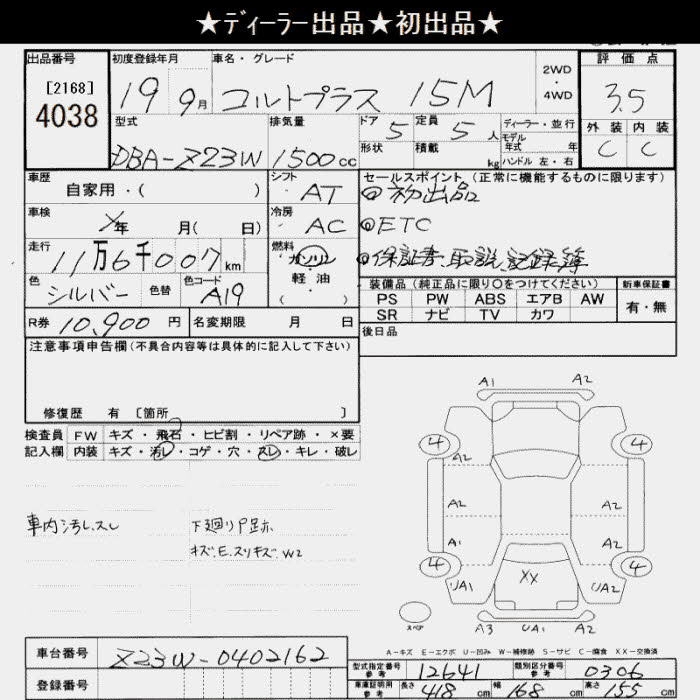 ★ディーラー出品★初出品★
出品番号 初度登録年月 車名・グレード 2WD・4WD 評価点
[2168]
4038 19 9月 コルトプラス 15M 3.5
型式 排気量 ドア 5 定員 5人 ディーラー・並行 外装 内装
モデル年式 年 C C
DBA-Z23W 1500cc 形状 積載 kg ハンドル 左・右
車歴 シフト セールスポイント (正常に機能するものに限ります)
自家用・( ) AT ◎初出品
車検 冷房
年 月( 日) AC ◎ETC
走行 燃料
11万6千007km ガソリン ◎保証書、取説、記録簿
色 色替 色コード 軽油 装備品 (純正品に限り○をつけてください) 新車保証書
シルバー A19 ( ) PS PW ABS エアB AW 有・無
SR ナビ TV カワ
R券 10,900円 名変期限 月 日 後日品
注意事項申告欄(不具合内容等は具体的に記入して下さい)
修復歴 有 [箇所 ]
検査員 FW キズ・飛石・ヒビ割・リペア跡・×要
記入欄 内装 キズ・汚レ・コゲ・穴・スレ・キレ・破レ
車内汚レ.スレ 下廻りP跡
キズ.E.スリキズ.W2
A1 A2
4 4
A2
A2 A2
A1 A2
4 4
UA1 XX UA2
スペア
A3 UA1 A2
A-キズ E-エクボ U-凹み W-補修跡 S-サビ C-腐食 XX-交換済
車台番号 Z23W-0402162
型式指定番号 参考 12641 類別区分番号 参考 0306
登録番号
車庫証明用 参考 長さ 418cm 幅 168cm 高さ 155cm